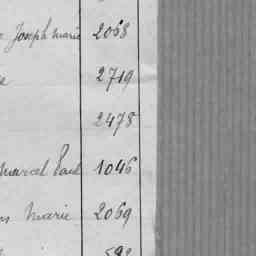 Joseph Marie 2068
2719
2478
Marcel Paul 1046
Marie 2069
592